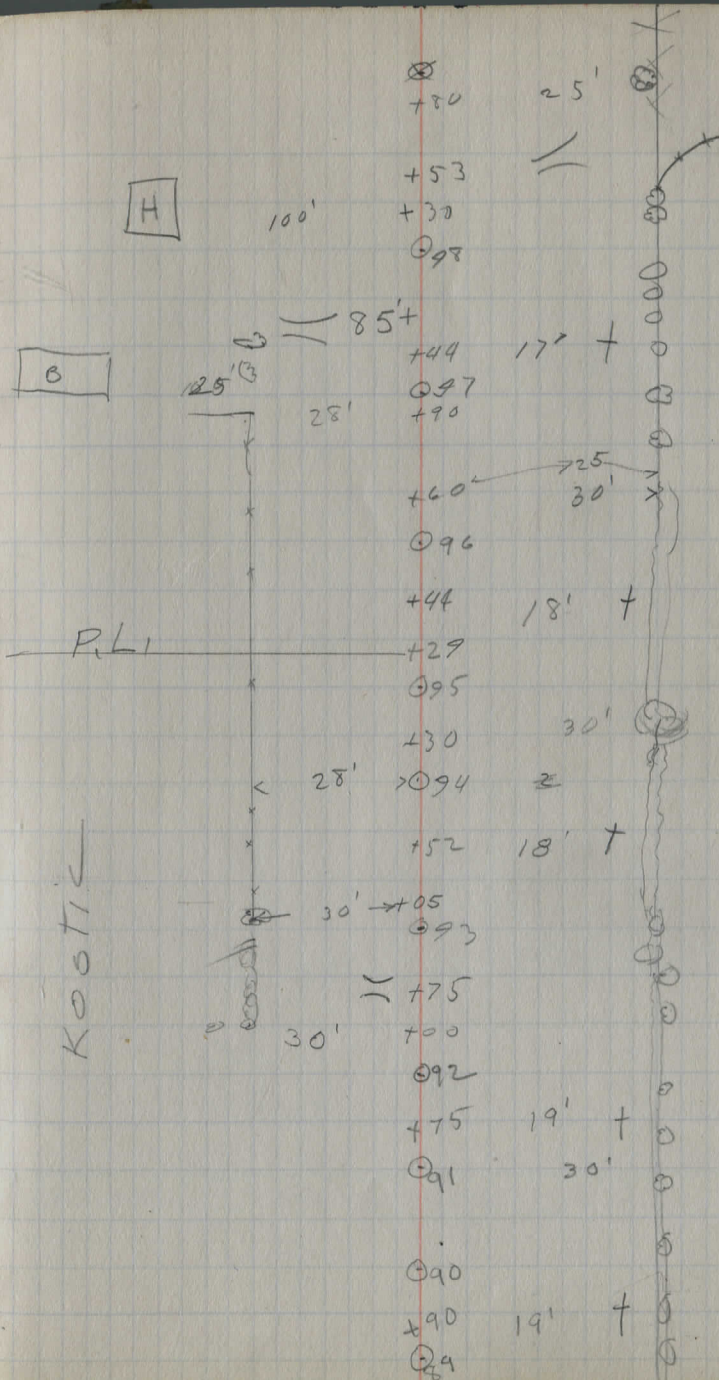 +80 25'
+53
H 100' +30
98
85'+
+44 17'
B 25' 97
28' +90
25
+60 30'
96
+44 18'
P.L. +29
95
+30 30'
28' 94 2
+52 18'
Kootic
30' +05
93
+75
30' +00
92
+75 19'
91 30'
90
+90 19'
89